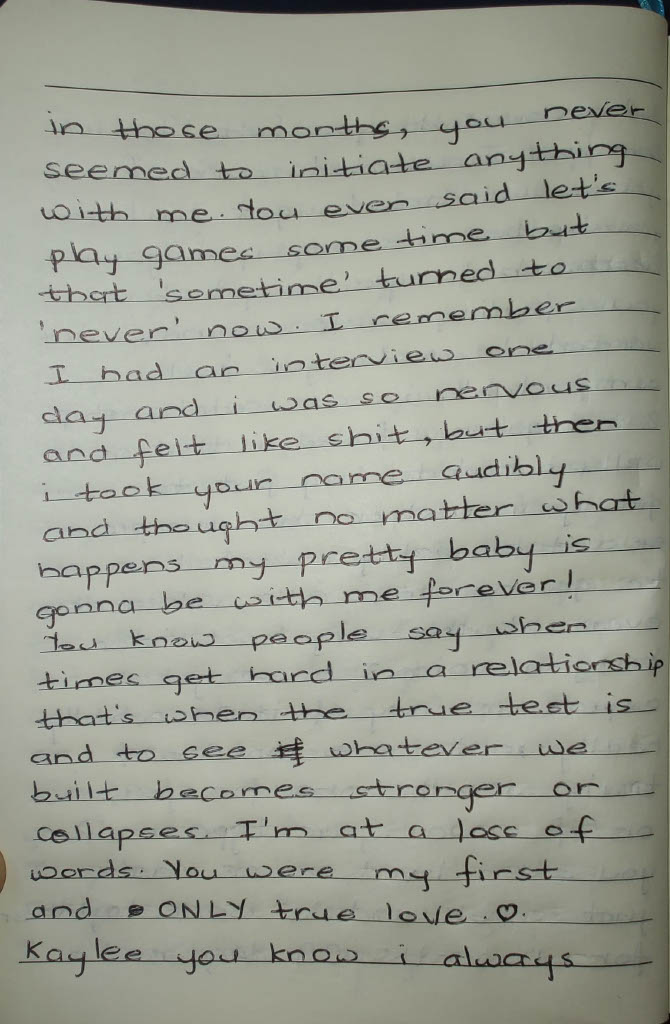 in those months, you never
seemed to initiate anything
with me. You even said let's
play games some time but
that 'sometime' turned to
'never' now. I remember
I had an interview one
day and i was so nervous
and felt like shit, but then
i took your name audibly
and thought no matter what
happens my pretty baby is
gonna be with me forever!
You know people say when
times get hard in a relationship
that's when the true test is
and to see if whatever we
built becomes stronger or
collapses. I'm at a loss of
words. You were my first
and ONLY true love. ♡.
Kaylee you know i always